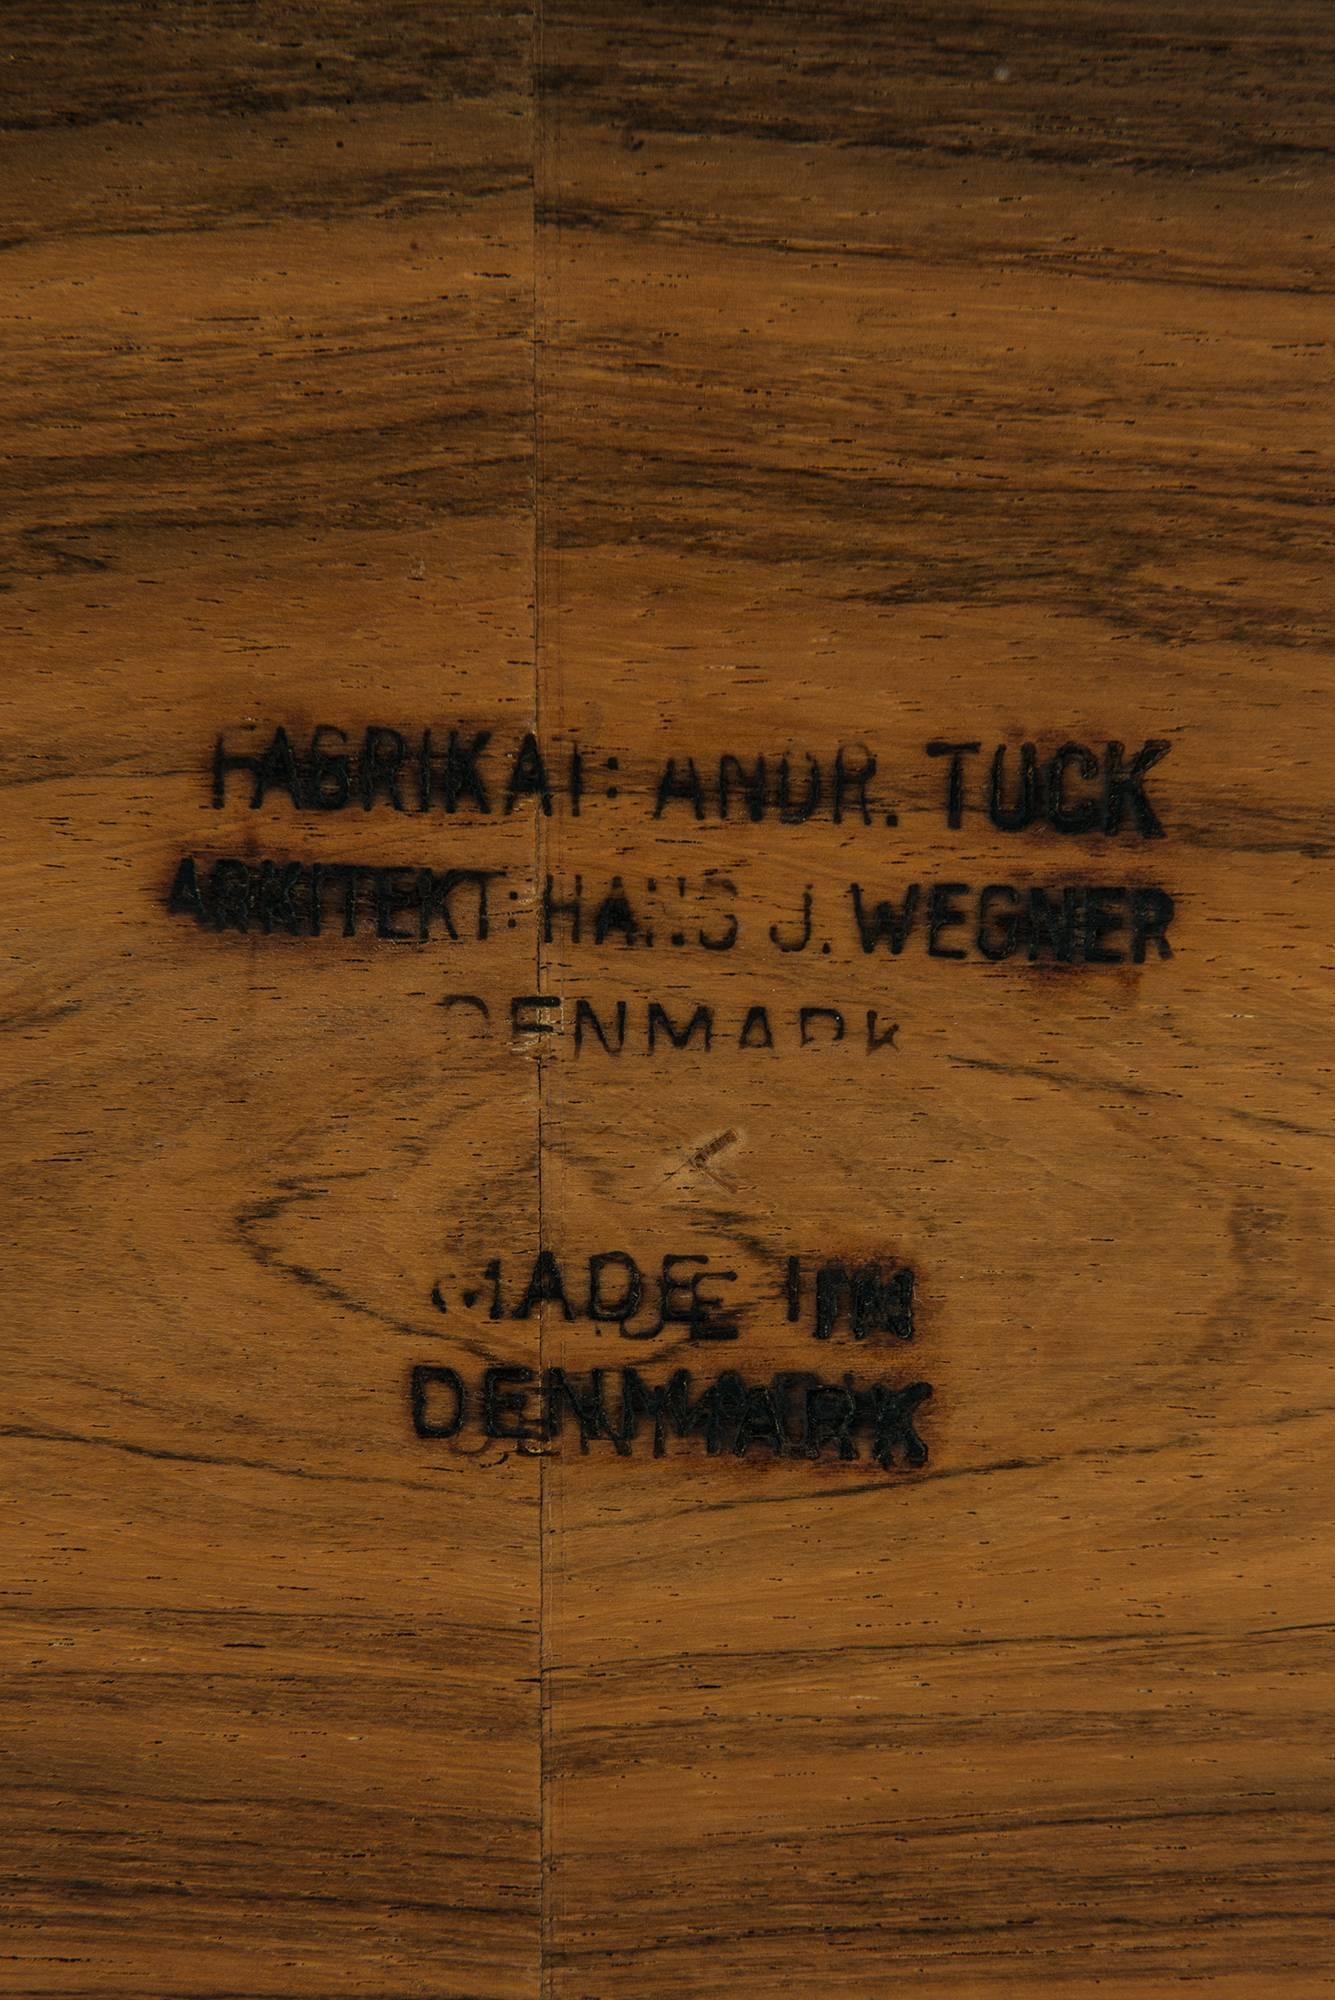 FABRIKAT: ANDR. TUCK
ARKITEKT: HANS J. WEGNER
DENMARK
MADE IN
DENMARK